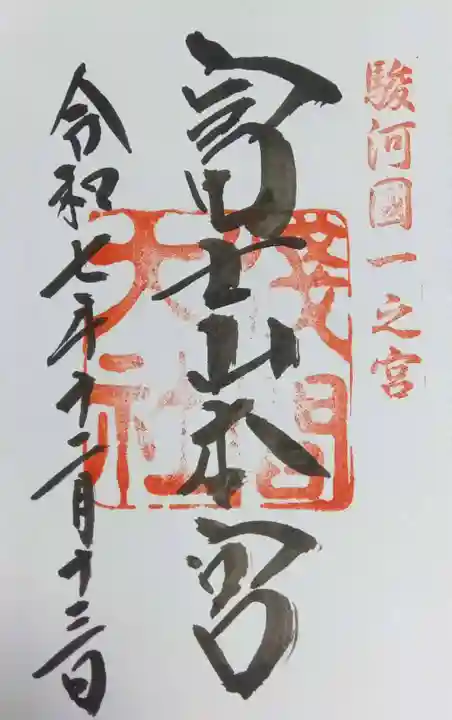 駿河國一之宮
富士山本宮
淺間
大社
令和七年十二月十三日